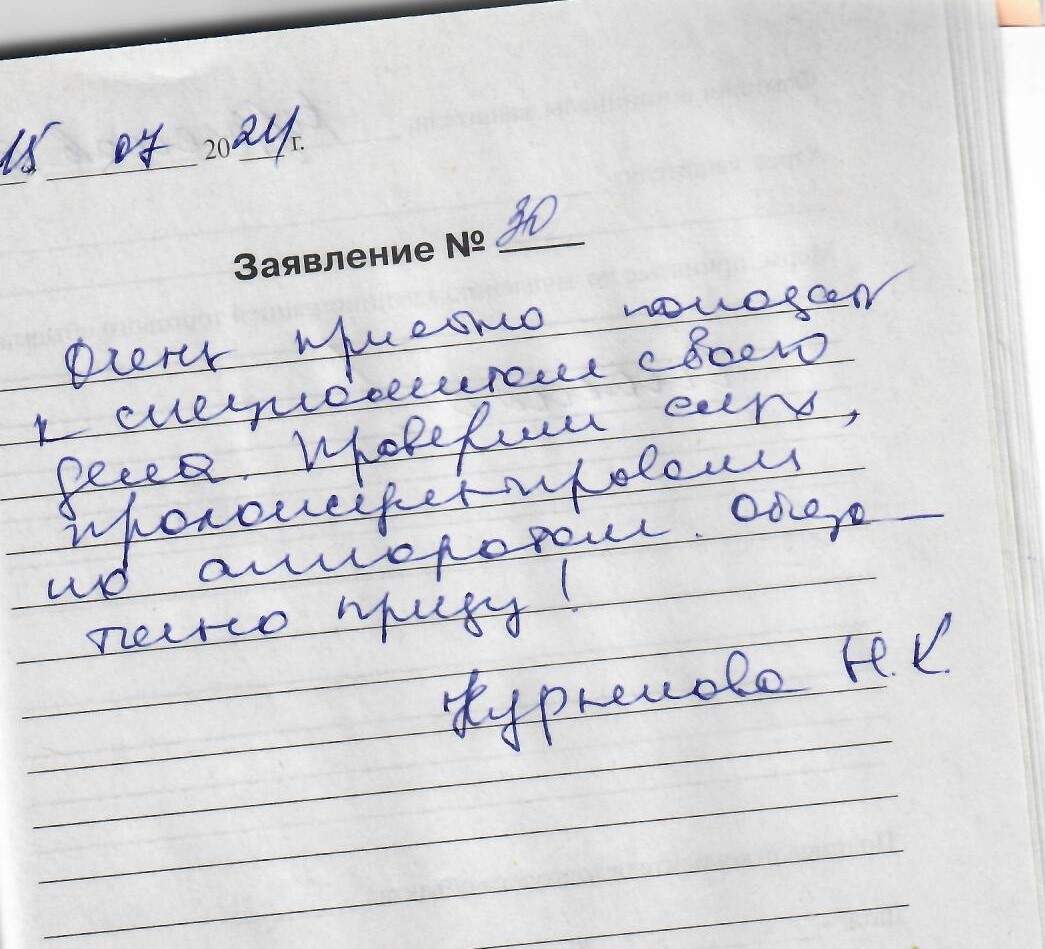 15 07 2024 г.
Заявление № 30
Очень приятно попадать
к специалистам своего
дела. Проверили слух,
проконсультировали
по аппаратам. Обяза-
тельно приду!
Н.К.